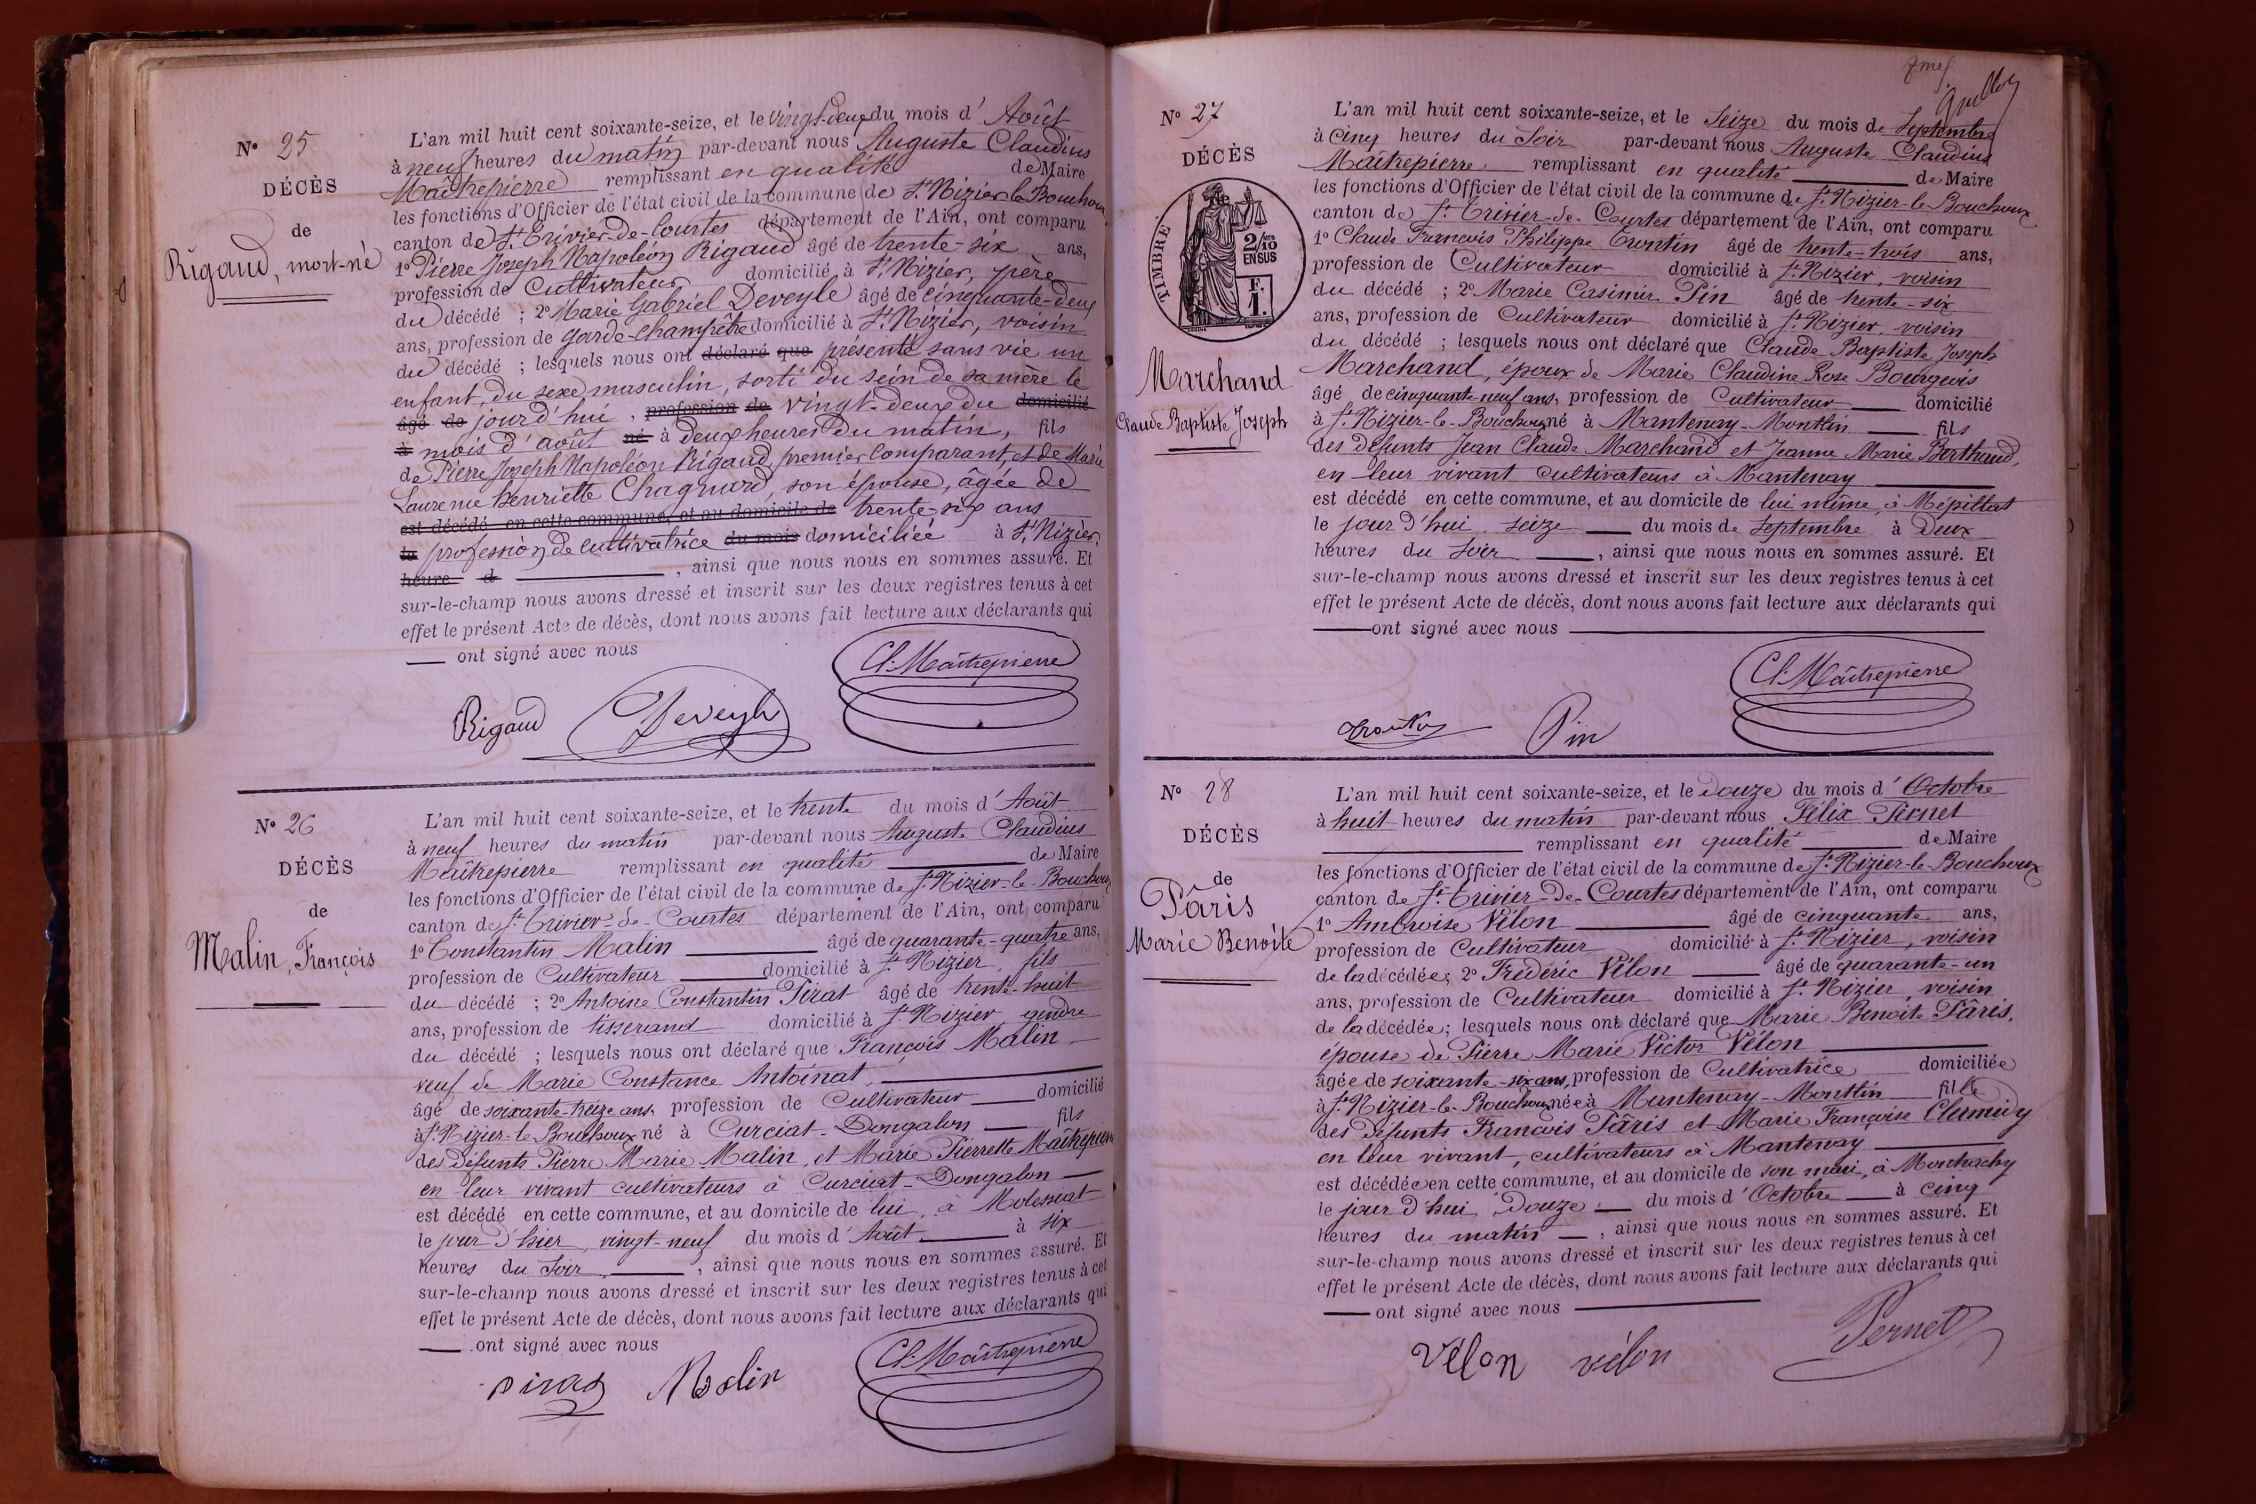 N° 25
DÉCÈS
de
Rigaud, mort-né
L'an mil huit cent soixante-seize, et le vingt-deux du mois d'Août
à neuf heures du matin par-devant nous Auguste Claudius
Maîtrepierre remplissant en qualité de Maire
les fonctions d'Officier de l'état civil de la commune de St Nizier le Bouchoux
canton de St Trivier-de-Courtes département de l'Ain, ont comparu
1° Pierre Joseph Napoléon Rigaud âgé de trente-six ans,
profession de Cultivateur domicilié à St Nizier, père
du décédé ; 2° Marie Gabriel Deveyle âgé de cinquante-deux
ans, profession de garde-champêtre domicilié à St Nizier, voisin
du décédé ; lesquels nous ont déclaré que présenté sans vie un
enfant, du sexe masculin, sorti du sein de sa mère le
âgé de jour d'hui, profession de vingt-deux du domicilié
à mois d'août né à deux heures du matin, fils
de Pierre Joseph Napoléon Rigaud, premier comparant, et de Marie
Laurence Henriette Chagnard, son épouse, âgée de
est décédé en cette commune, et au domicile de trente-six ans
le profession de cultivatrice du mois domiciliée à St Nizier,
heure d , ainsi que nous nous en sommes assuré. Et
sur-le-champ nous avons dressé et inscrit sur les deux registres tenus à cet
effet le présent Acte de décès, dont nous avons fait lecture aux déclarants qui
ont signé avec nous
Rigaud Deveyle Cl. Maîtrepierre
N° 26
DÉCÈS
de
Malin, François
L'an mil huit cent soixante-seize, et le trente du mois d'Août
à neuf heures du matin par-devant nous Auguste Claudius
Maîtrepierre remplissant en qualité de Maire
les fonctions d'Officier de l'état civil de la commune de St Nizier-le-Bouchoux
canton de St Trivier-de-Courtes département de l'Ain, ont comparu
1° Constantin Malin âgé de quarante-quatre ans,
profession de Cultivateur domicilié à St Nizier, fils
du décédé ; 2° Antoine Constantin Pirat âgé de trente-huit
ans, profession de tisserand domicilié à St Nizier, gendre
du décédé ; lesquels nous ont déclaré que François Malin
veuf de Marie Constance Antoinat,
âgé de soixante-treize ans, profession de Cultivateur domicilié
à St Nizier-le-Bouchoux né à Curciat-Dongalon fils
des défunts Pierre Marie Malin, et Marie Pierrette Maîtrepierre
en leur vivant cultivateurs à Curciat-Dongalon
est décédé en cette commune, et au domicile de lui, à Molessuat
le jour d'hier, vingt-neuf du mois d'Août à six
heures du soir, , ainsi que nous nous en sommes assuré. Et
sur-le-champ nous avons dressé et inscrit sur les deux registres tenus à cet
effet le présent Acte de décès, dont nous avons fait lecture aux déclarants qui
ont signé avec nous
Malin Cl. Maîtrepierre
N° 27
DÉCÈS
TIMBRE
2/10
EN SUS
F.
1.
Marchand
Claude Baptiste Joseph
L'an mil huit cent soixante-seize, et le Seize du mois de Septembre
à cinq heures du Soir par-devant nous Auguste Claudius
Maîtrepierre remplissant en qualité de Maire
les fonctions d'Officier de l'état civil de la commune de St Nizier-le-Bouchoux
canton de St Trivier-de-Courtes département de l'Ain, ont comparu
1° Claude François Philippe Trontin âgé de trente-trois ans,
profession de Cultivateur domicilié à St Nizier, voisin
du décédé ; 2° Marie Casimir Pin âgé de trente-six
ans, profession de Cultivateur domicilié à St Nizier, voisin
du décédé ; lesquels nous ont déclaré que Claude Baptiste Joseph
Marchand, époux de Marie Claudine Rose Bourgeois
âgé de cinquante-neuf ans, profession de Cultivateur domicilié
à St Nizier-le-Bouchoux né à Mantenay-Montlin fils
des défunts Jean Claude Marchand et Jeanne Marie Berthaud,
en leur vivant cultivateurs à Mantenay
est décédé en cette commune, et au domicile de lui même, à Mépillat
le jour d'hui seize du mois de septembre à deux
heures du soir , ainsi que nous nous en sommes assuré. Et
sur-le-champ nous avons dressé et inscrit sur les deux registres tenus à cet
effet le présent Acte de décès, dont nous avons fait lecture aux déclarants qui
ont signé avec nous
Pin Cl. Maîtrepierre
N° 28
DÉCÈS
de
Pâris
Marie Benoite
L'an mil huit cent soixante-seize, et le douze du mois d'Octobre
à huit heures du matin par-devant nous Félix Pernet
remplissant en qualité de Maire
les fonctions d'Officier de l'état civil de la commune de St Nizier-le-Bouchoux
canton de St Trivier-de-Courtes département de l'Ain, ont comparu
1° Ambroise Vélon âgé de cinquante ans,
profession de Cultivateur domicilié à St Nizier, voisin
de la décédée; 2° Frédéric Vélon âgé de quarante-un
ans, profession de Cultivateur domicilié à St Nizier, voisin
de la décédée; lesquels nous ont déclaré que Marie Benoite Pâris,
épouse de Pierre Marie Victor Vélon
âgée de soixante-six ans, profession de Cultivatrice domiciliée
à St Nizier-le-Bouchoux née à Mantenay-Montlin fille
des défunts François Pâris et Marie Françoise
en leur vivant, cultivateurs à Mantenay
est décédée en cette commune, et au domicile de son mari, à Montrachy
le jour d'hui Douze du mois d'Octobre à cinq
heures du matin , ainsi que nous nous en sommes assuré. Et
sur-le-champ nous avons dressé et inscrit sur les deux registres tenus à cet
effet le présent Acte de décès, dont nous avons fait lecture aux déclarants qui
ont signé avec nous
Vélon vélon Pernet